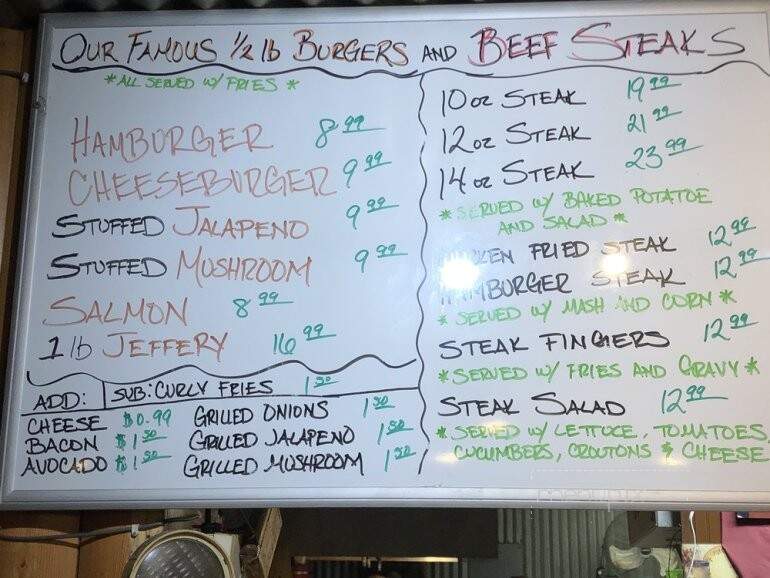 OUR FAMOUS 1/2 lb BURGERS AND BEEF STEAKS
*ALL SERVED W/ FRIES *
HAMBURGER 8.99
CHEESEBURGER 9.99
STUFFED JALAPENO 9.99
STUFFED MUSHROOM 9.99
SALMON 8.99
1 lb JEFFERY 16.99
ADD: SUB: CURLY FRIES 1.50
CHEESE $0.99 GRILLED ONIONS 1.50
BACON $1.50 GRILLED JALAPENO 1.50
AVOCADO $1.50 GRILLED MUSHROOM 1.50
10 oz STEAK 19.99
12 oz STEAK 21.99
14 oz STEAK 23.99
*SERVED W/ BAKED POTATOE
AND SALAD *
CHICKEN FRIED STEAK 12.99
HAMBURGER STEAK 12.99
* SERVED W/ MASH AND CORN *
STEAK FINGERS 12.99
*SERVED W/ FRIES AND GRAVY *
STEAK SALAD 12.99
*SERVED W/ LETTUCE, TOMATOES,
CUCUMBERS, CROUTONS & CHEESE